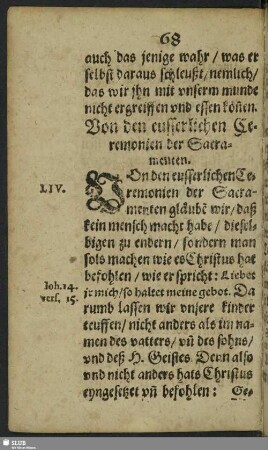 68
auch das jenige wahr / was er
selbst daraus schleußt / nemlich /
das wir jhn mit vnserm munde
nicht ergreiffen vnd essen köñen.
Von den eusserlichen Ce-
remonien der Sacra-
menten.
LIV.
VOn den eusserlichen Ce-
remonien der Sacra-
menten gläubẽ wir / daß
kein mensch macht habe / diesel-
bigen zu endern / sondern man
sols machen wie es Christus hat
befohlen / wie er spricht: Liebet
Joh. 14.
vers. 15.
jr mich / so haltet meine gebot. Da
rumb lassen wir vnsere kinder
teuffen / nicht anders als im na-
men des vatters / vñ des sohns /
vnd deß H. Geistes. Denn also
vnd nicht anders hats Christus
eyngesetzet vñ befohlen: Ge-
SLUB